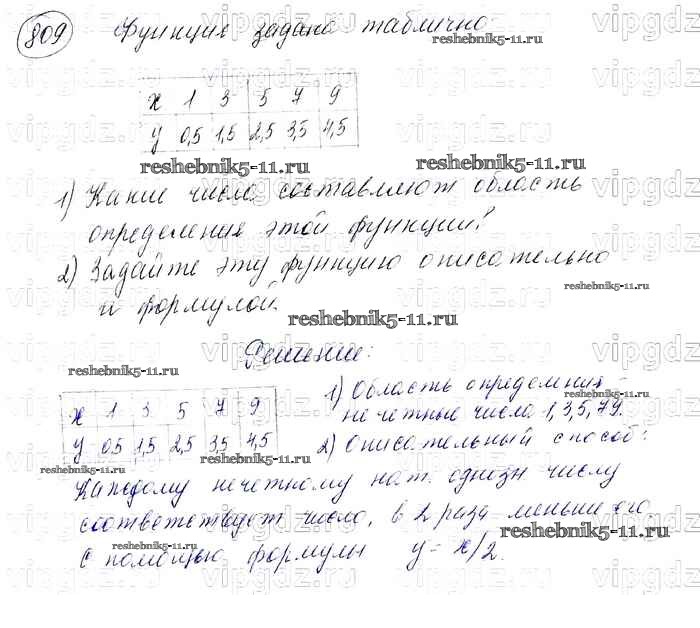 809 Функция задана таблично:
reshebnik5-11.ru
x 1 3 5 7 9
y 0,5 1,5 2,5 3,5 4,5
reshebnik5-11.ru reshebnik5-11.ru
1) Какие числа составляют область
определения этой функции?
2) Задайте эту функцию описательно
и формулой.
reshebnik5-11.ru
reshebnik5-11.ru
Решение:
reshebnik5-11.ru
x 1 3 5 7 9
y 0,5 1,5 2,5 3,5 4,5
1) Область определения
reshebnik5-11.ru
нечетные числа 1,3,5,7,9.
2) Описательный способ:
reshebnik5-11.ru
reshebnik5-11.ru
Каждому нечетному нат. однозн числу
соответствует число, в 2 раза меньше его.
reshebnik5-11.ru
reshebnik5-11.ru
С помощью формулы y = x/2.
vipgdz.ru